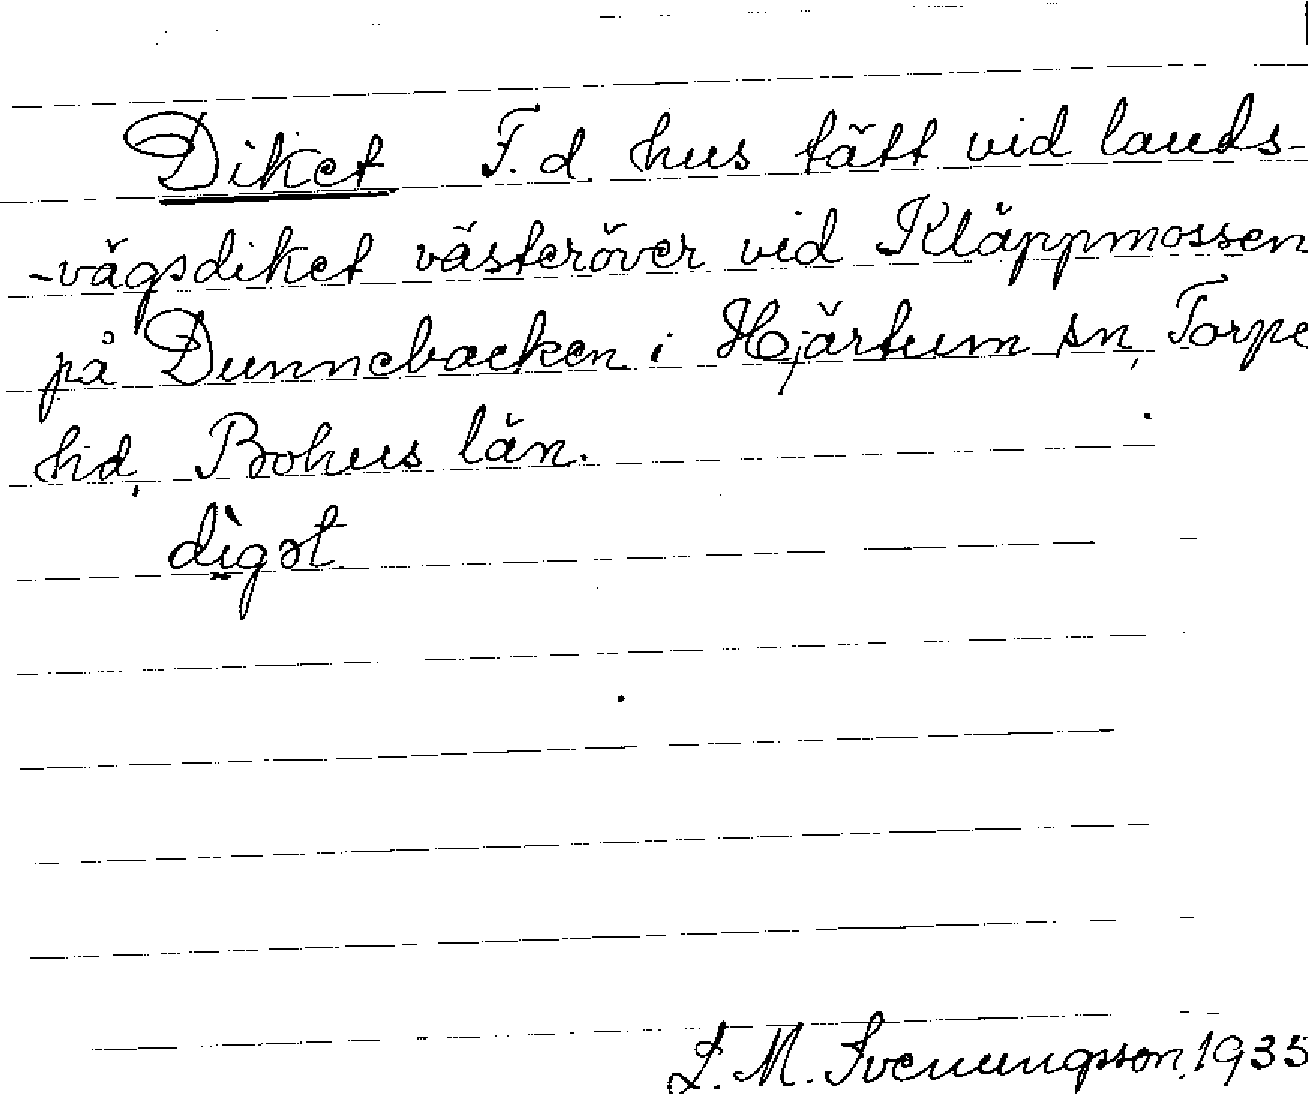 Diket F.d. hus tätt vid lands-
-vägsdiket västeröver vid Kläppmossen
på Dunnebacken i Hjärtum sn, Torpe
hd, Bohus län.
dìgət
L. M. Svenungsson, 1935